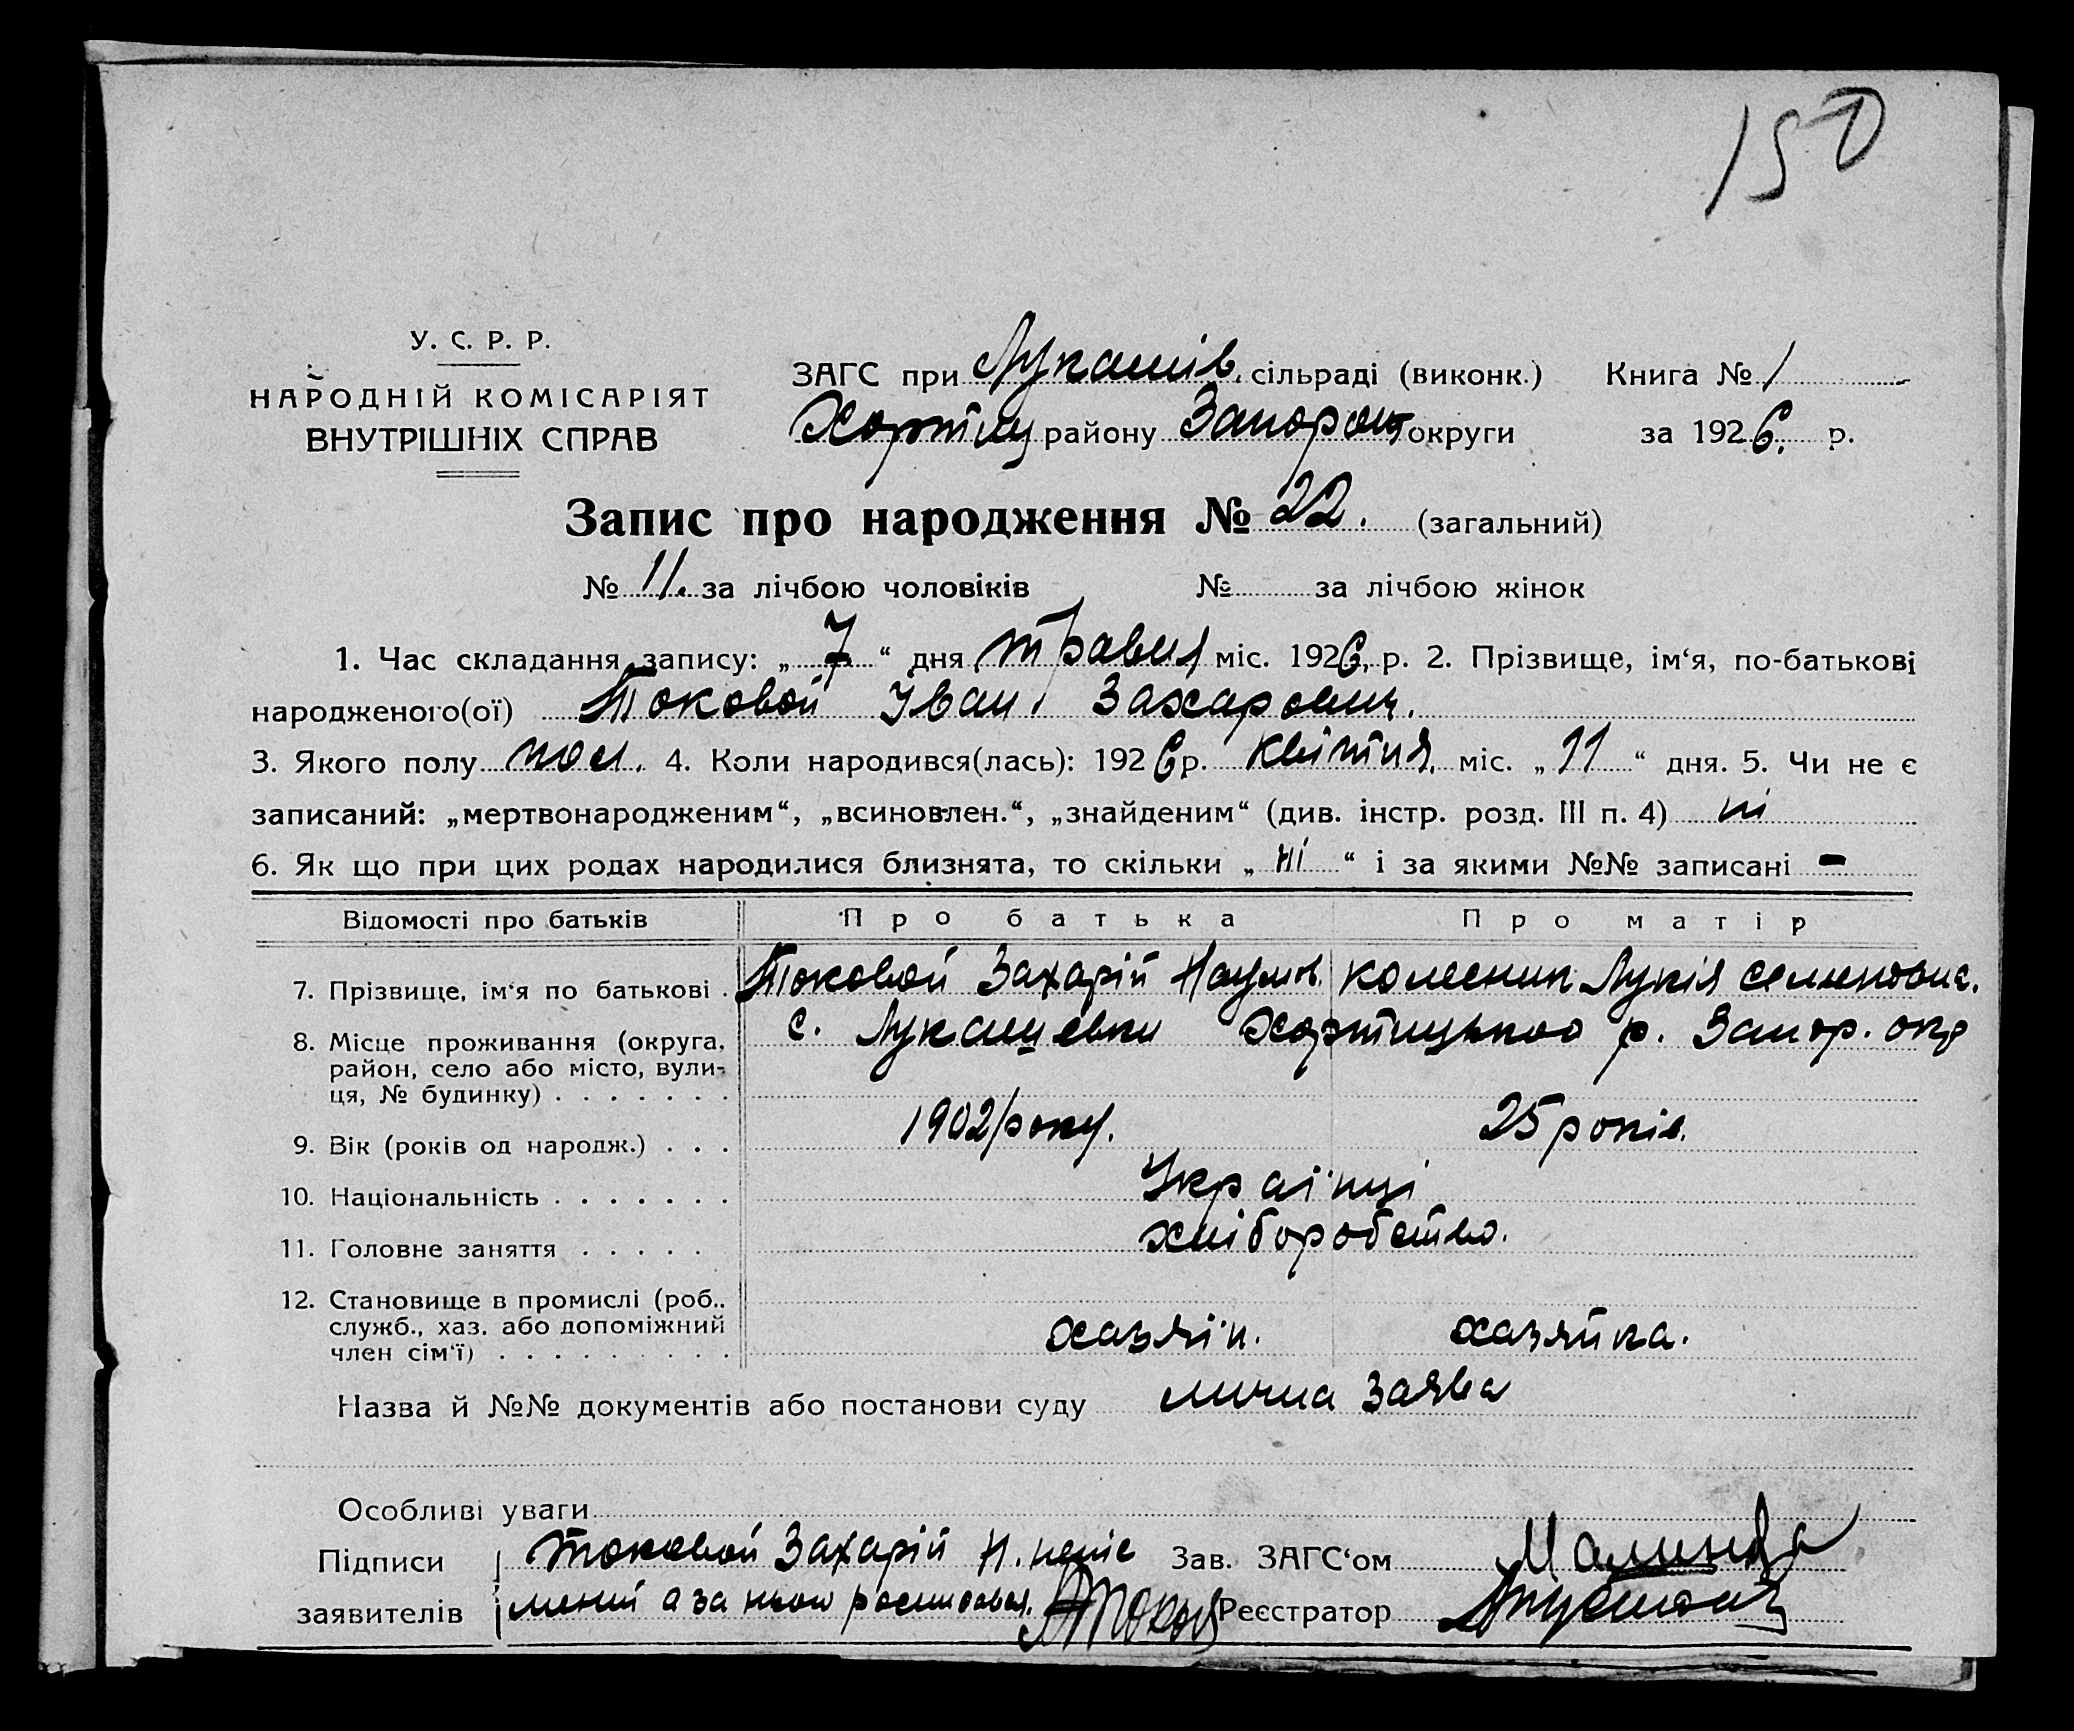 150
У. С. Р. Р.
НАРОДНІЙ КОМІСАРІЯТ
ВНУТРІШНІХ СПРАВ
ЗАГС при Лукашів. сільраді (виконк.) Книга № 1
Хортиц району Запорож округи за 1926. р.
Запис про народження № 22. (загальний)
№ 11. за лічбою чоловіків № за лічбою жінок
1. Час складання запису: „ 7 “ дня травня міс. 1926, р. 2. Прізвище, ім‘я, по-батькові
народженого(ої) Токовой Іван Захарович.
3. Якого полу чол. 4. Коли народився(лась): 1926 р. квітня, міс. „ 11 “ дня. 5. Чи не є
записаний: „мертвонародженим“, „всиновлен.“, „знайденим“ (див. інстр. розд. III п. 4) ні
6. Як що при цих родах народилися близнята, то скільки „ ні “ і за якими №№ записані -
Відомості про батьків Про батька Про матір
7. Прізвище, ім‘я по батькові . Токовой Захарій Наумов. Колесник Лукія Семеновна.
8. Місце проживання (округа, с. Лукашевки Хортицького р. Запор. окр
район, село або місто, вули-
ця, № будинку) . . . . . . .
9. Вік (років од народж.) . . . 1902 року. 25 років.
10. Національність . . . . . . . Українці
11. Головне заняття . . . . . хліборобство.
12. Становище в промислі (роб..
служб., хаз. або допоміжний
член сім‘ї) . . . . . . . . . хазяїн. хазяйка.
Назва й №№ документів або постанови суду лична заява
Особливі уваги
Підписи Токовой Захарій Н. непіс Зав. ЗАГС‘ом
заявителів менний а за нього Реєстратор